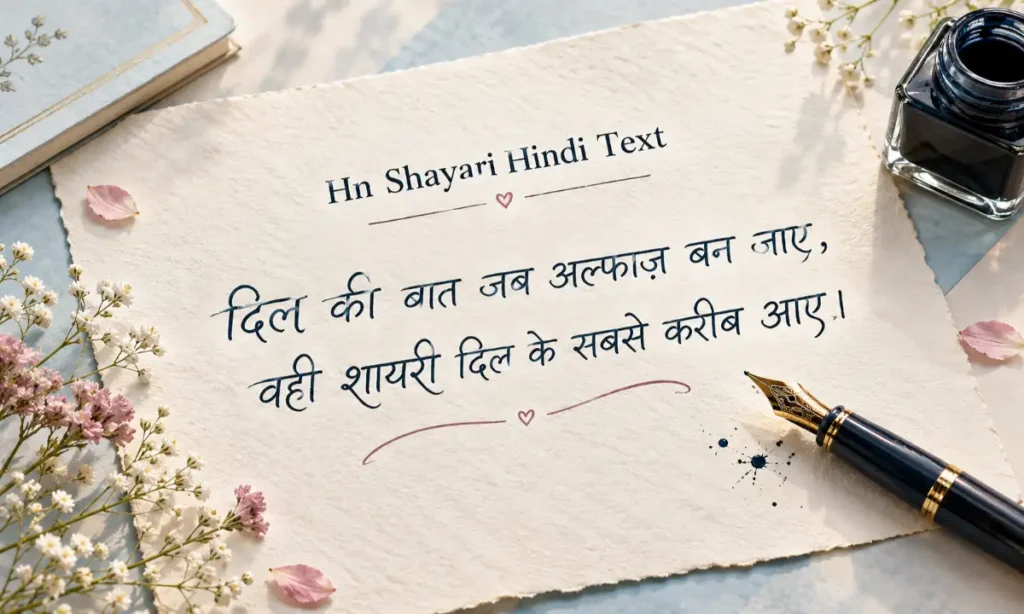 Hn Shayari Hindi Text
दिल की बात जब अल्फाज़ बन जाए,
वही शायरी दिल के सबसे करीब आए।